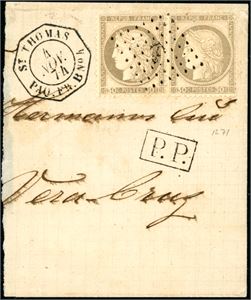 ST THOMAS
4
NOV.
74
PAQ. FR. B No 4
REPUB. FRANC.
REPUB. FRANC.
30 C POSTES 30 C
30 C POSTES 30 C
Hermanns
P.P.
Vera Cruz